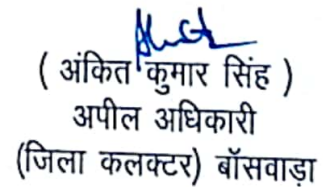 ( अंकित कुमार सिंह )
अपील अधिकारी
(जिला कलक्टर) बॉसवाड़ा